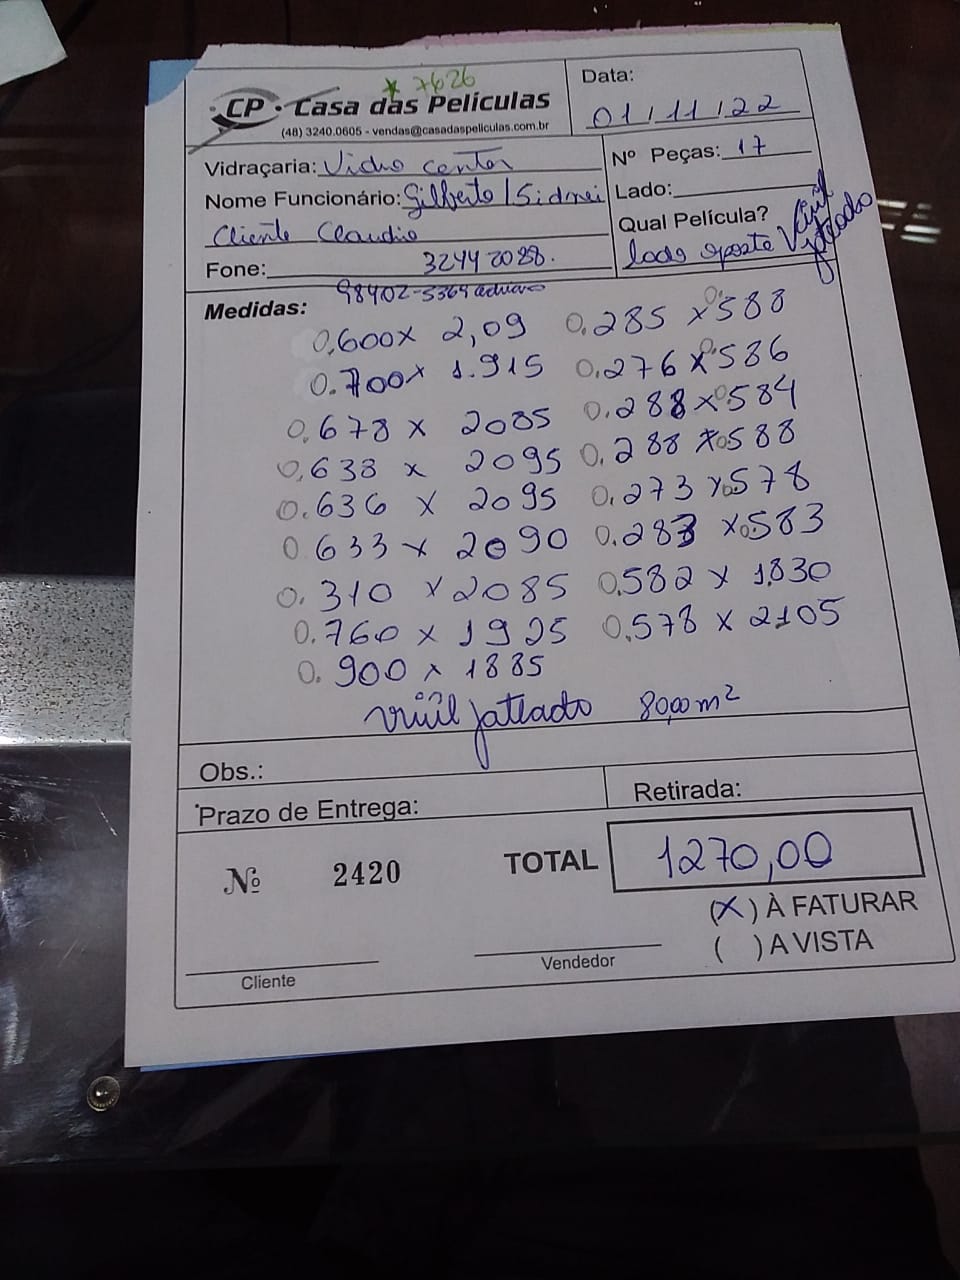 * 7626
CP Casa das Películas
(48) 3240.0605 - vendas@casadaspeliculas.com.br
Data:
01/11/22
Vidraçaria: Vidro center
Nome Funcionário: Gilberto/Sidnei
Cliente Claudio
Fone: 3244 2088.
98402-5369
Nº Peças: 17
Lado:
Qual Película?
lado oposto Vinil jateado
Medidas:
0,600 x 2,09 0.285 x 0.588
0.700 x 1.915 0.276 x 0.586
0.678 x 2085 0.288 x 0584
0,638 x 2095 0.288 x 0588
0.636 x 2095 0.273 x 0.578
0 633 x 2090 0.283 x 0.583
0. 310 x 2085 0.582 x 1.830
0.760 x 1925 0.578 x 2105
0. 900 x 1885
vinil jateado 80,00 m²
Obs.:
Prazo de Entrega:
Retirada:
Nº 2420
TOTAL 1270,00
(X) À FATURAR
( ) A VISTA
Cliente
Vendedor